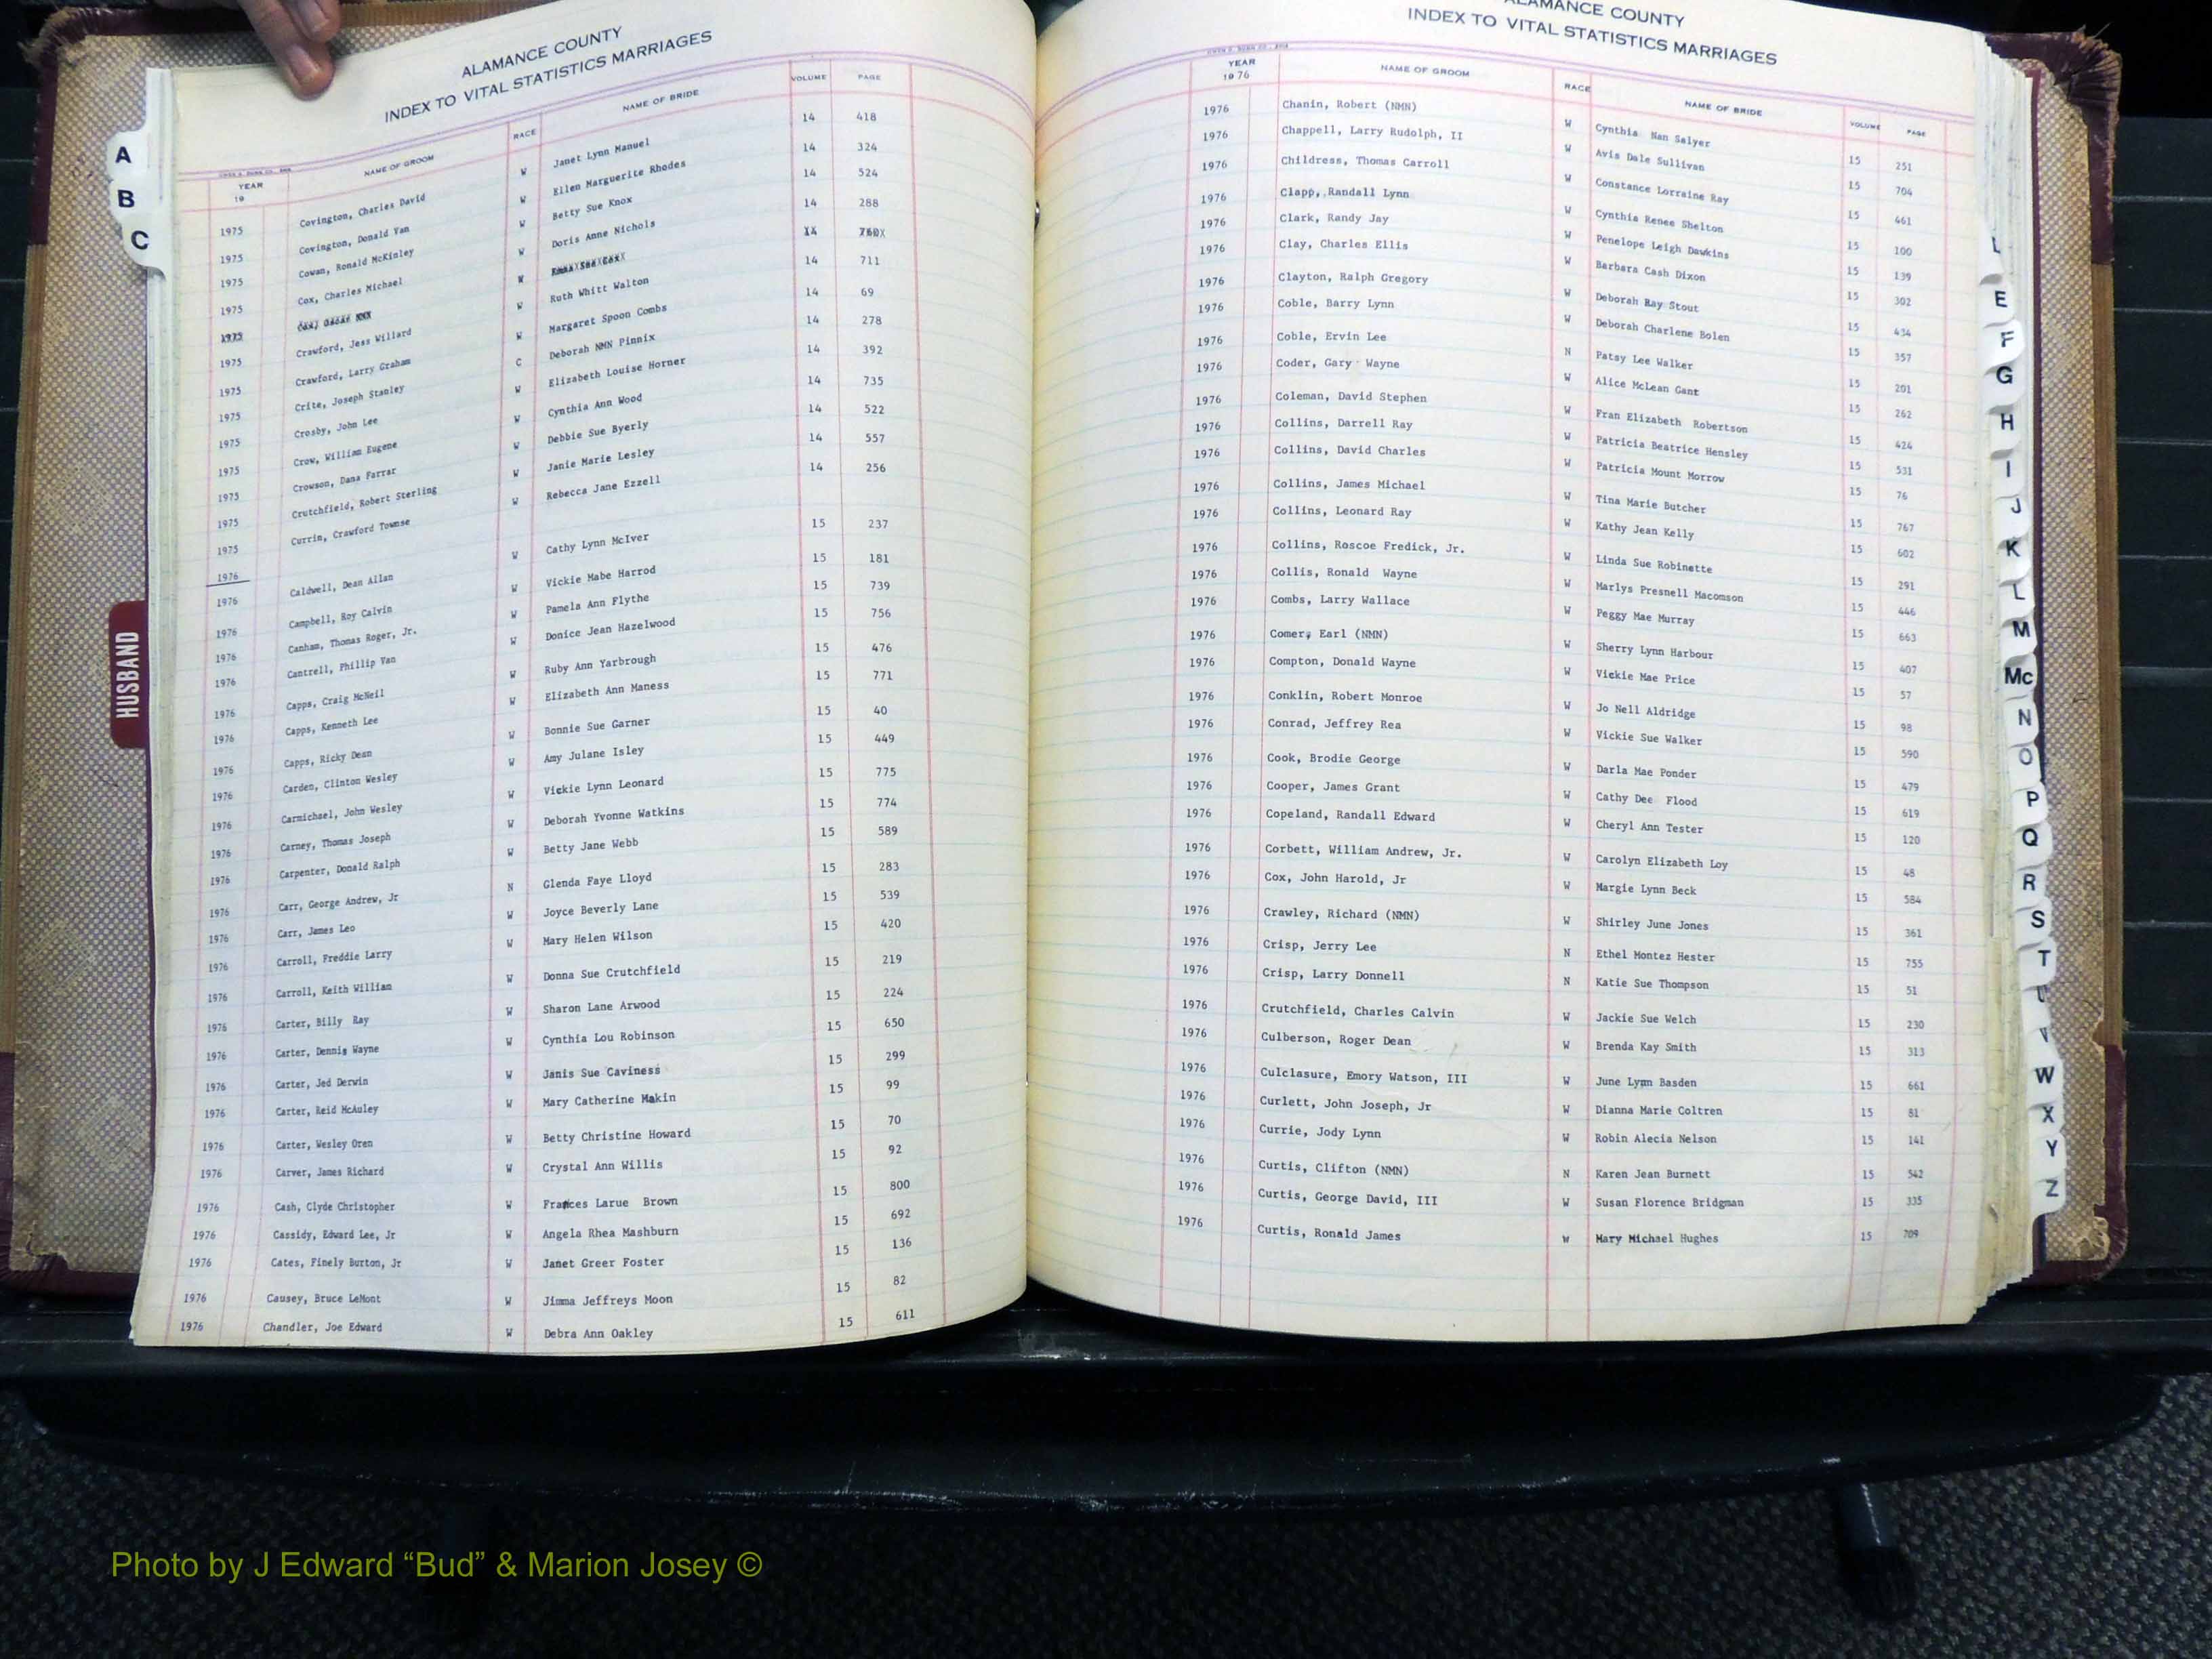 ALAMANCE COUNTY
INDEX TO VITAL STATISTICS MARRIAGES
YEAR 19 NAME OF GROOM RACE NAME OF BRIDE VOLUME PAGE
1975 Covington, Charles David W Janet Lynn Manuel 14 418
1975 Covington, Donald Van W Ellen Marguerite Rhodes 14 324
1975 Cowan, Ronald McKinley W Betty Sue Knox 14 524
1975 Cox, Charles Michael W Doris Anne Nichols 14 288
1975 Cox, Oscar NMN W 14
1975 Crawford, Jess Willard W Ruth Whitt Walton 14 711
1975 Crawford, Larry Graham W Margaret Spoon Combs 14 69
1975 Crite, Joseph Stanley C Deborah NMN Pinnix 14 278
1975 Crosby, John Lee W Elizabeth Louise Horner 14 392
1975 Crow, William Eugene W Cynthia Ann Wood 14 735
1975 Crowson, Dana Farrar W Debbie Sue Byerly 14 522
1975 Crutchfield, Robert Sterling W Janie Marie Lesley 14 557
1975 Currin, Crawford Townse W Rebecca Jane Ezzell 14 256
1976
1976 Caldwell, Dean Allan W Cathy Lynn McIver 15 237
1976 Campbell, Roy Calvin W Vickie Mabe Harrod 15 181
1976 Canham, Thomas Roger, Jr. W Pamela Ann Flythe 15 739
1976 Cantrell, Phillip Van W Donice Jean Hazelwood 15 756
1976 Capps, Craig McNeil W Ruby Ann Yarbrough 15 476
1976 Capps, Kenneth Lee W Elizabeth Ann Maness 15 771
1976 Capps, Ricky Dean W Bonnie Sue Garner 15 40
1976 Carden, Clinton Wesley W Amy Julane Isley 15 449
1976 Carmichael, John Wesley W Vickie Lynn Leonard 15 775
1976 Carney, Thomas Joseph W Deborah Yvonne Watkins 15 774
1976 Carpenter, Donald Ralph W Betty Jane Webb 15 589
1976 Carr, George Andrew, Jr N Glenda Faye Lloyd 15 283
1976 Carr, James Leo W Joyce Beverly Lane 15 539
1976 Carroll, Freddie Larry W Mary Helen Wilson 15 420
1976 Carroll, Keith William W Donna Sue Crutchfield 15 219
1976 Carter, Billy Ray W Sharon Lane Arwood 15 224
1976 Carter, Dennis Wayne W Cynthia Lou Robinson 15 650
1976 Carter, Jed Derwin W Janis Sue Caviness 15 299
1976 Carter, Reid McAuley W Mary Catherine Makin 15 99
1976 Carter, Wesley Oren W Betty Christine Howard 15 70
1976 Carver, James Richard W Crystal Ann Willis 15 92
1976 Cash, Clyde Christopher W Frances Larue Brown 15 800
1976 Cassidy, Edward Lee, Jr W Angela Rhea Mashburn 15 692
1976 Cates, Finely Burton, Jr W Janet Greer Foster 15 136
1976 Causey, Bruce LeMont W Jimma Jeffreys Moon 15 82
1976 Chandler, Joe Edward W Debra Ann Oakley 15 611
ALAMANCE COUNTY
INDEX TO VITAL STATISTICS MARRIAGES
YEAR 1976 NAME OF GROOM RACE NAME OF BRIDE VOLUME PAGE
1976 Chanin, Robert (NMN) W Cynthia Nan Salyer 15 251
1976 Chappell, Larry Rudolph, II W Avis Dale Sullivan 15 704
1976 Childress, Thomas Carroll W Constance Lorraine Ray 15 461
1976 Clapp, Randall Lynn W Cynthia Renee Shelton 15 100
1976 Clark, Randy Jay W Penelope Leigh Dawkins 15 139
1976 Clay, Charles Ellis W Barbara Cash Dixon 15 302
1976 Clayton, Ralph Gregory W Deborah Ray Stout 15 434
1976 Coble, Barry Lynn W Deborah Charlene Bolen 15 357
1976 Coble, Ervin Lee N Patsy Lee Walker 15 201
1976 Coder, Gary Wayne W Alice McLean Gant 15 262
1976 Coleman, David Stephen W Fran Elizabeth Robertson 15 424
1976 Collins, Darrell Ray W Patricia Beatrice Hensley 15 531
1976 Collins, David Charles W Patricia Mount Morrow 15 76
1976 Collins, James Michael W Tina Marie Butcher 15 767
1976 Collins, Leonard Ray W Kathy Jean Kelly 15 602
1976 Collins, Roscoe Fredick, Jr. W Linda Sue Robinette 15 291
1976 Collis, Ronald Wayne W Marlys Presnell Macomson 15 446
1976 Combs, Larry Wallace W Peggy Mae Murray 15 663
1976 Comer, Earl (NMN) W Sherry Lynn Harbour 15 407
1976 Compton, Donald Wayne W Vickie Mae Price 15 57
1976 Conklin, Robert Monroe W Jo Nell Aldridge 15 98
1976 Conrad, Jeffrey Rea W Vickie Sue Walker 15 590
1976 Cook, Brodie George W Darla Mae Ponder 15 479
1976 Cooper, James Grant W Cathy Dee Flood 15 619
1976 Copeland, Randall Edward W Cheryl Ann Tester 15 120
1976 Corbett, William Andrew, Jr. W Carolyn Elizabeth Loy 15 48
1976 Cox, John Harold, Jr W Margie Lynn Beck 15 584
1976 Crawley, Richard (NMN) W Shirley June Jones 15 361
1976 Crisp, Jerry Lee N Ethel Montez Hester 15 755
1976 Crisp, Larry Donnell N Katie Sue Thompson 15 51
1976 Crutchfield, Charles Calvin W Jackie Sue Welch 15 230
1976 Culberson, Roger Dean W Brenda Kay Smith 15 313
1976 Culclasure, Emory Watson, III W June Lynn Basden 15 661
1976 Curlett, John Joseph, Jr W Dianna Marie Coltren 15 81
1976 Currie, Jody Lynn W Robin Alecia Nelson 15 141
1976 Curtis, Clifton (NMN) N Karen Jean Burnett 15 542
1976 Curtis, George David, III W Susan Florence Bridgman 15 335
1976 Curtis, Ronald James W Mary Michael Hughes 15 709
A
B
C
HUSBAND
E
F
G
H
I
J
K
L
M
Mc
N
O
P
Q
R
S
T
U
V
W
X
Y
Z
Photo by J Edward “Bud” & Marion Josey ©